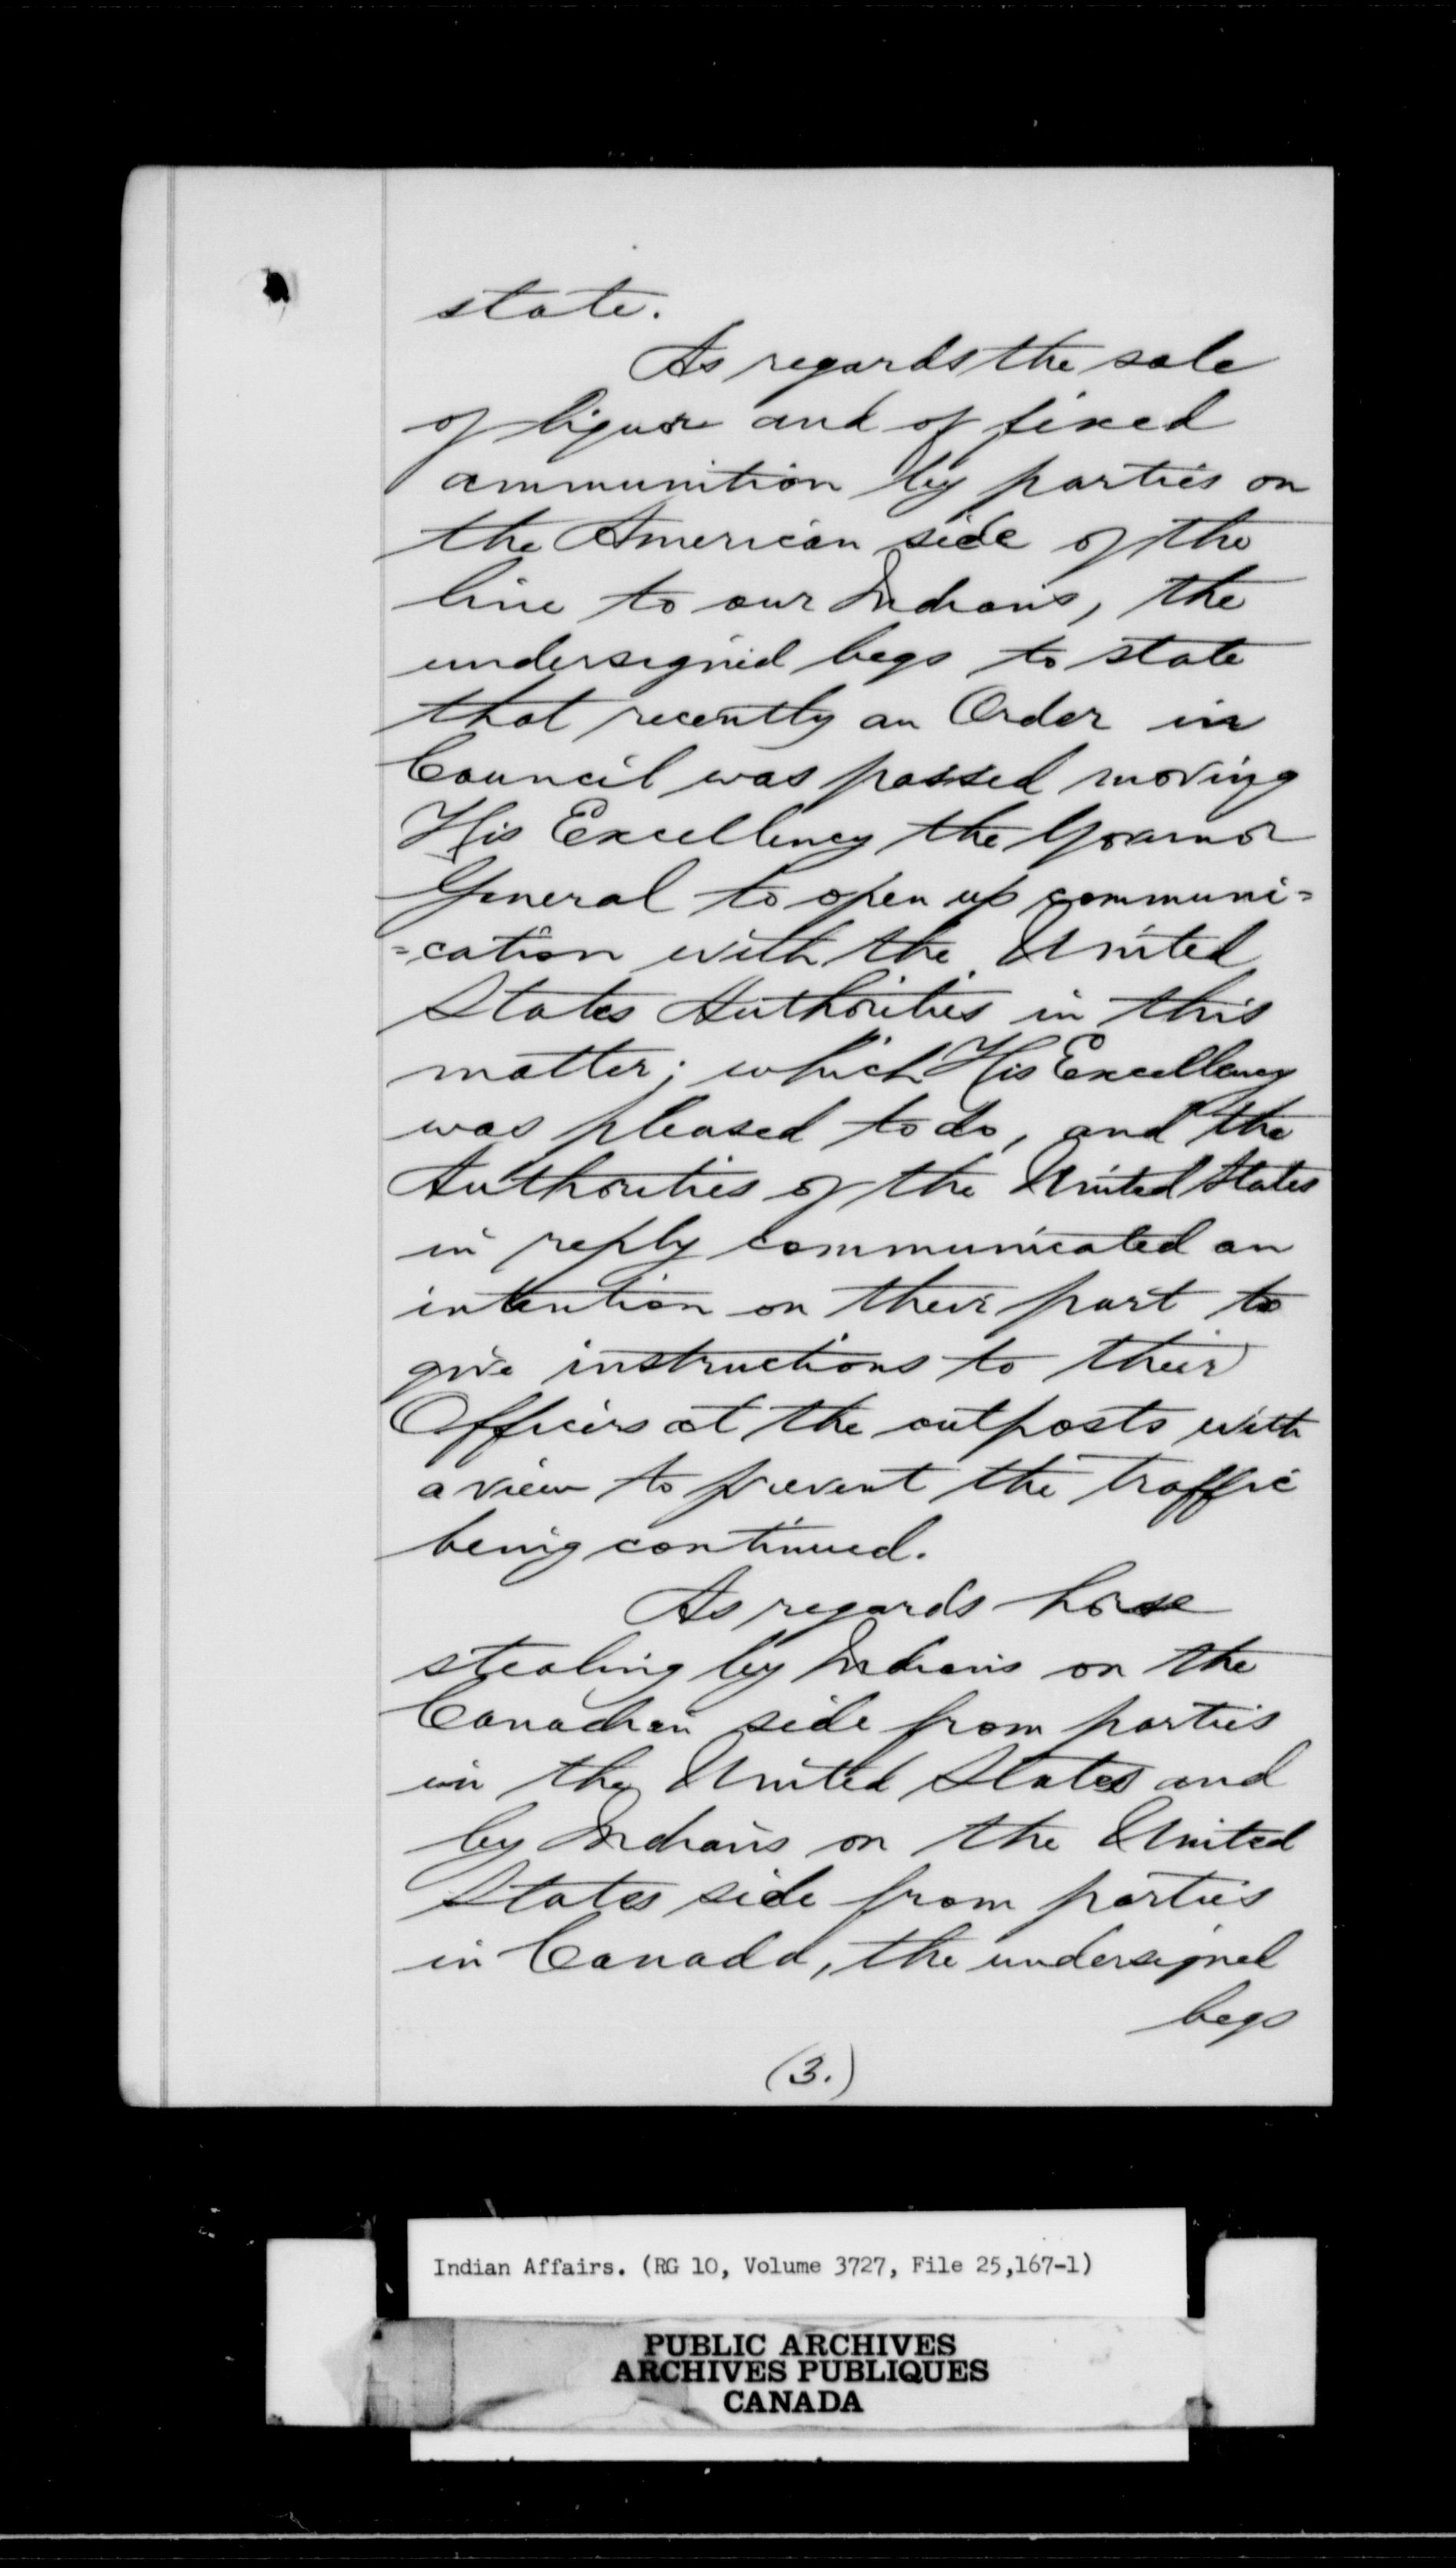 state.
As regards the sale
of liquor and of fixed
ammunition by parties on
the American side of the
line to our Indians, the
undersigned begs to state
that recently an Order in
Council was passed moving
His Excellency the Governor
General to open up communi=
=cation with the United
States Authorities in this
matter; which His Excellency
was pleased to do, and the
Authorities of the United States
in reply communicated an
intention on their part to
give instructions to their
Officers at the outposts with
a view to prevent the traffic
being continued.
As regards horse
stealing by Indians on the
Canadian side from parties
in the United States and
by Indians on the United
States side from parties
in Canada, the undersigned
begs
(3.)
Indian Affairs. (RG 10, Volume 3727, File 25,167-1)
PUBLIC ARCHIVES
ARCHIVES PUBLIQUES
CANADA